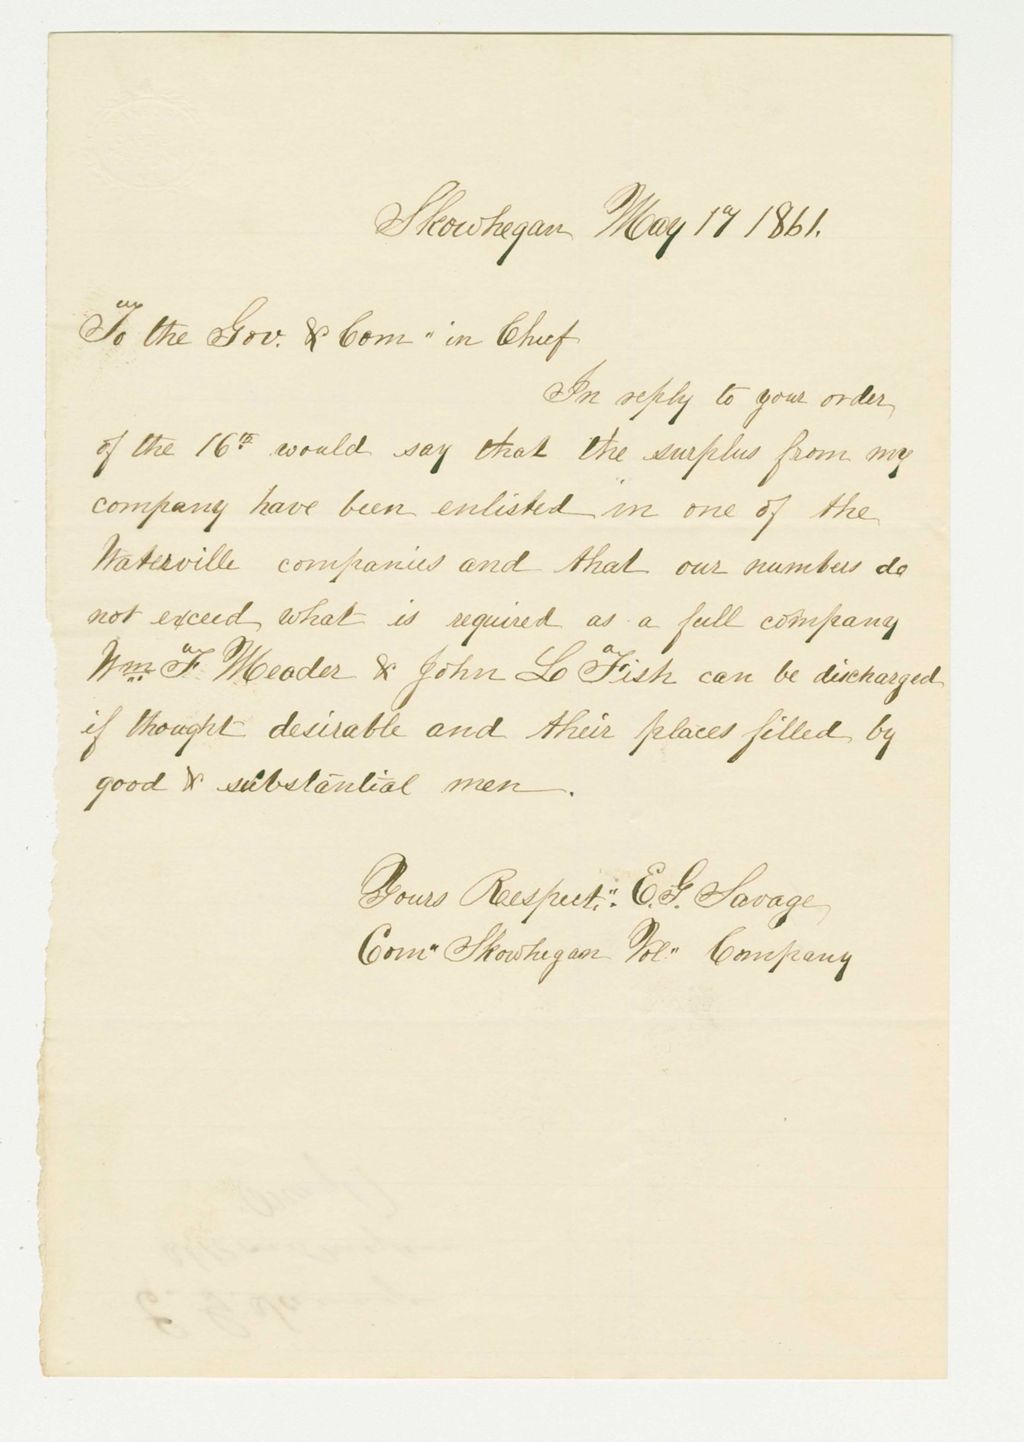 Skowhegan May 17 1861.
To the Gov. & Com" in Chief
In reply to your order
of the 16th would say that the surplus from my
company have been enlisted in one of the
Waterville companies and that our numbers do
not exceed what is required as a full company
Wm. F. Meader & John L Fish can be discharged
if thought desirable and their places filled by
good & substantial men.
Yours Respect." E. G. Savage
Com" Skowhegan Vol" Company